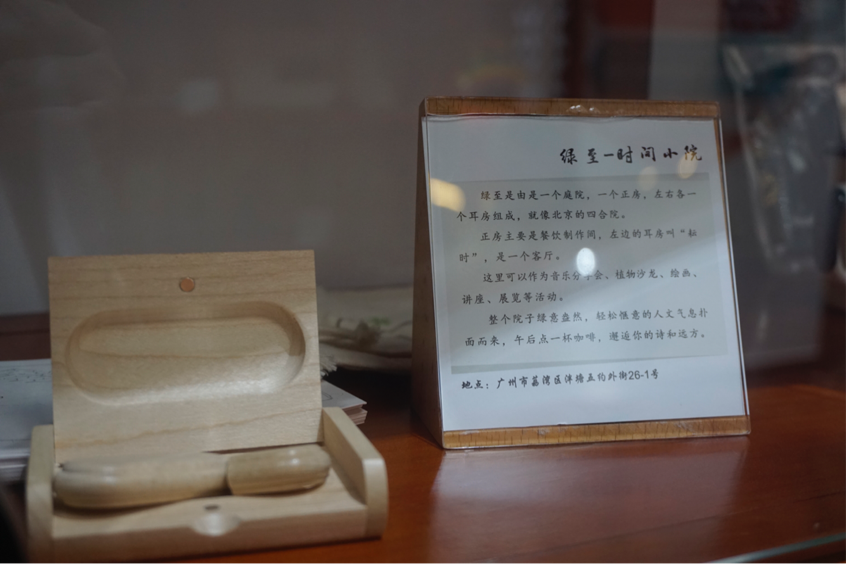 绿至一时间小院
绿至是由是一个庭院，一个正房，左右各一
个耳房组成，就像北京的四合院。
正房主要是餐饮制作间，左边的耳房叫“耘
时”，是一个客厅。
这里可以作为音乐分享会、植物沙龙、绘画、
讲座、展览等活动。
整个院子绿意盎然，轻松惬意的人文气息扑
面而来，午后点一杯咖啡，邂逅你的诗和远方。
地点：广州市荔湾区泮塘五约外街26-1号